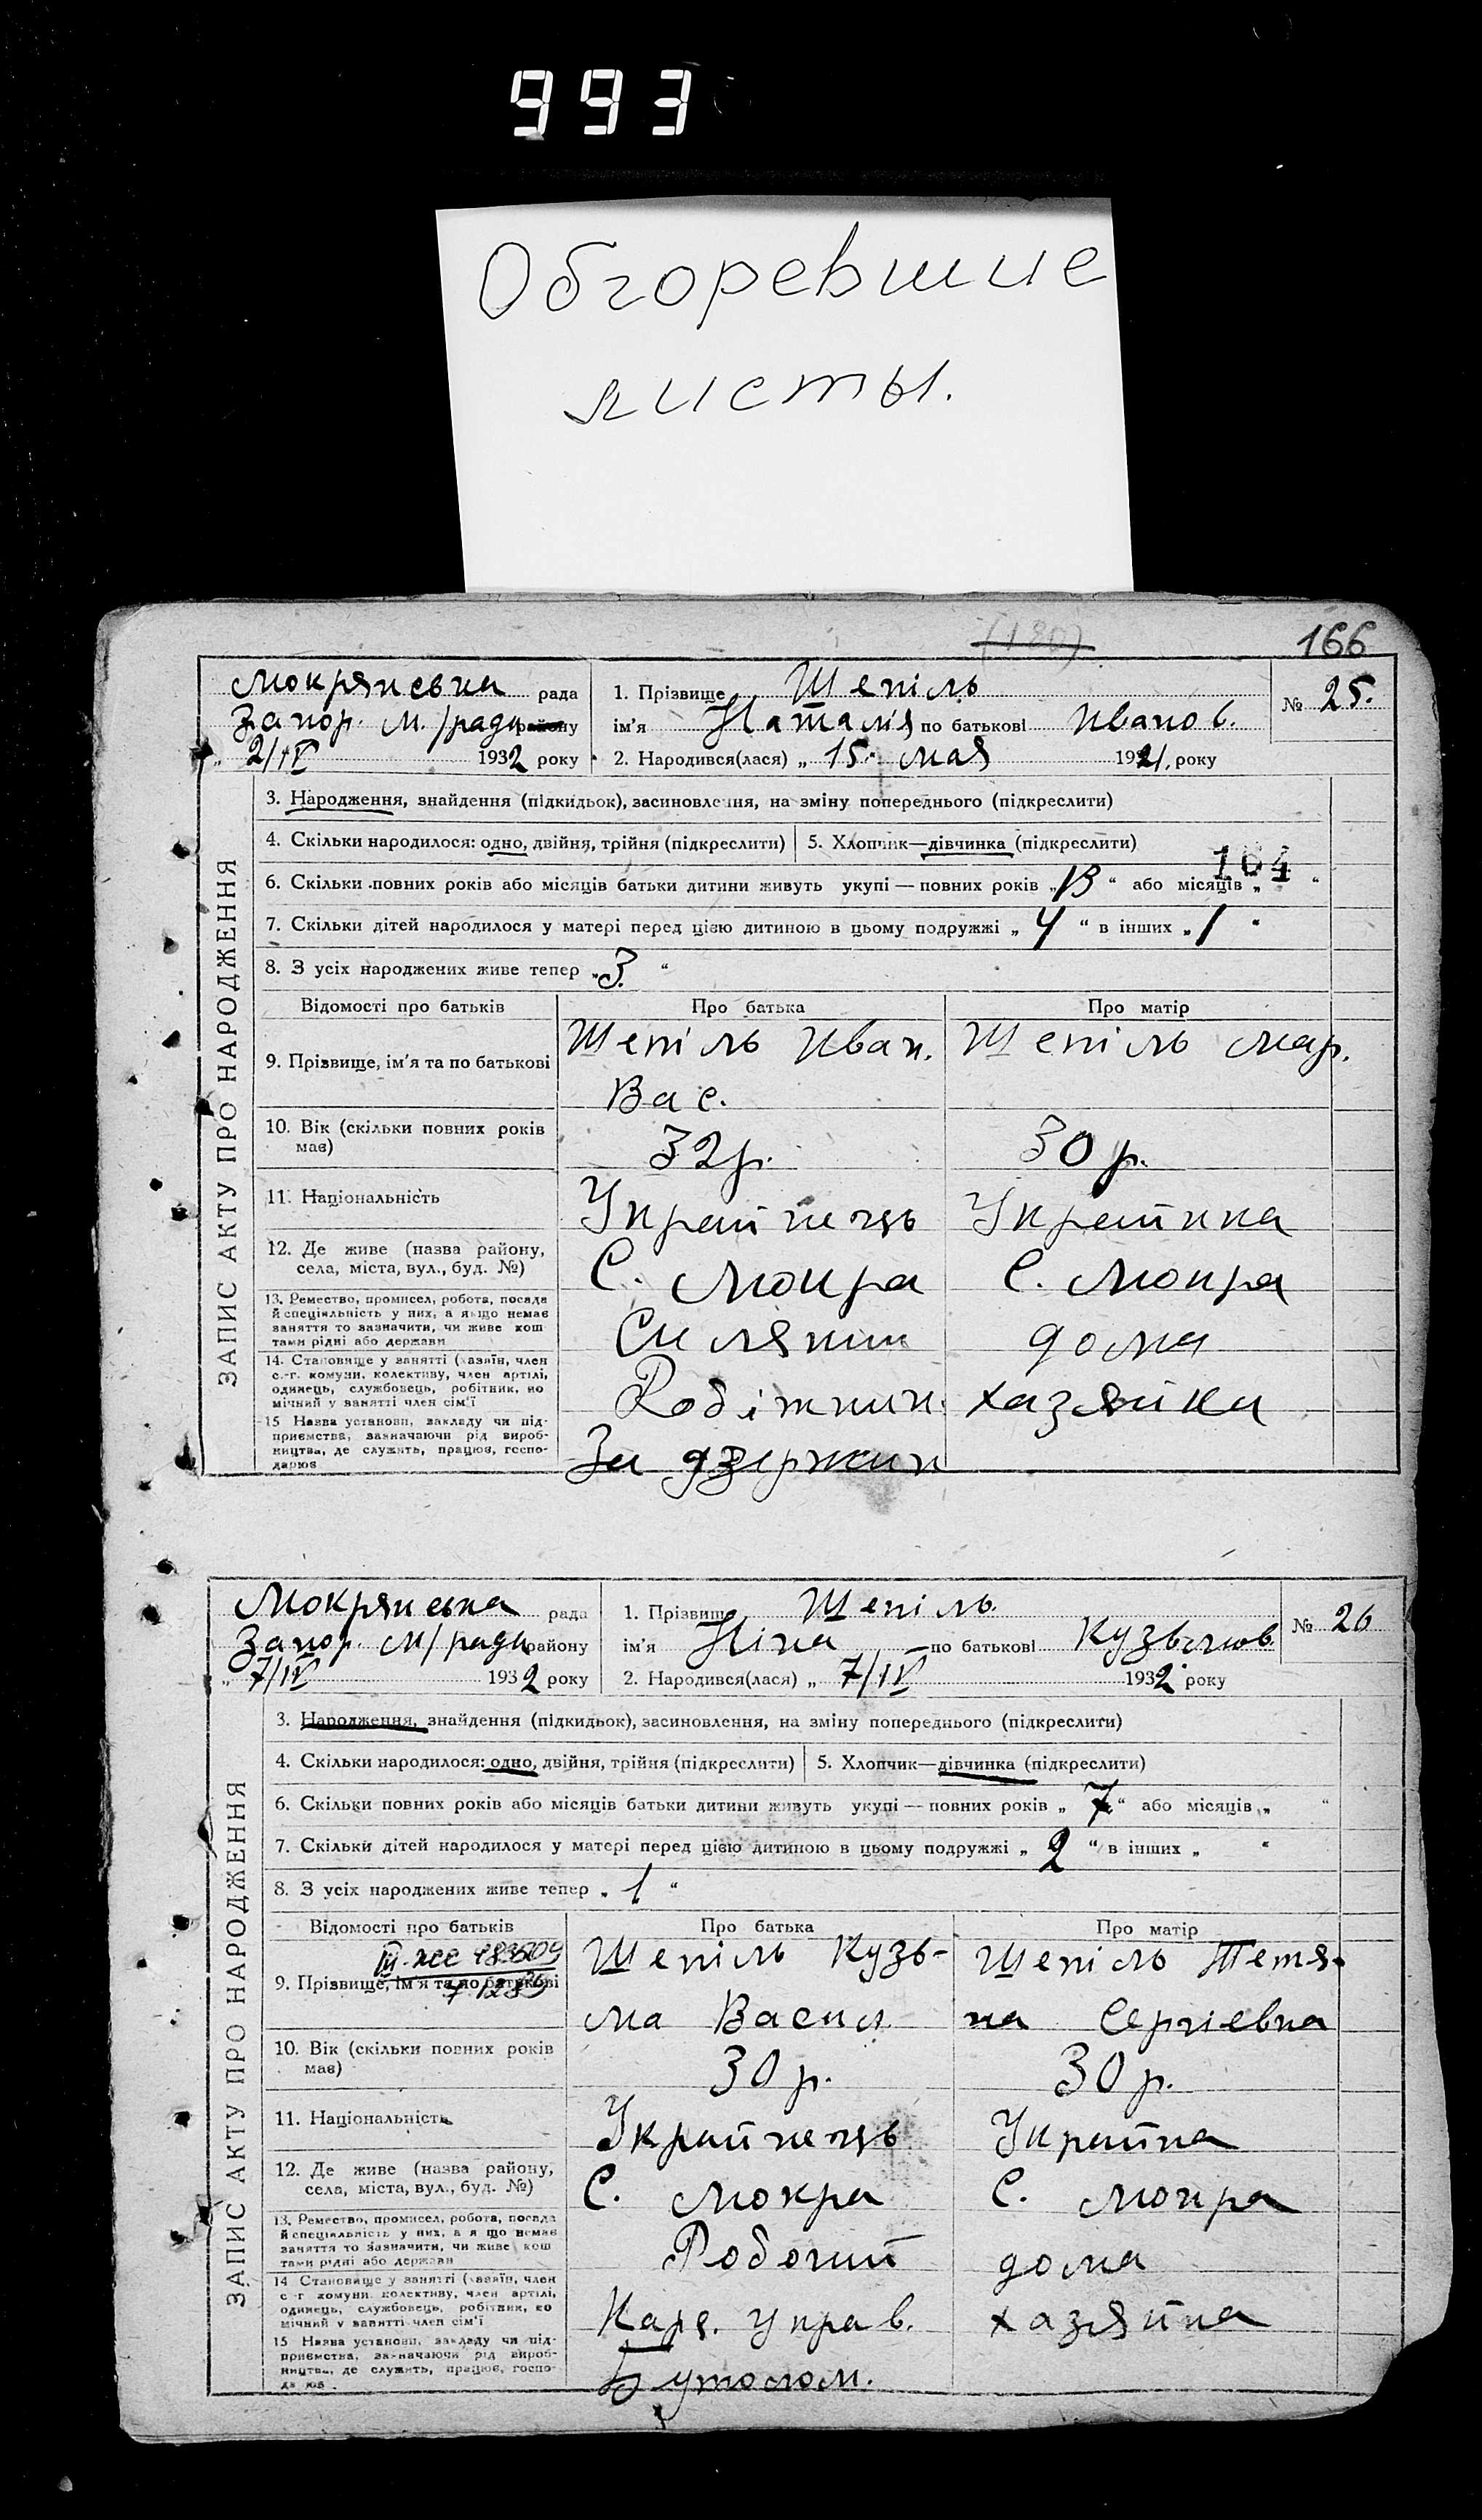 993
Обгоревшие
листы.
(180)
166
Мокрянська рада
Запор. м./ради району
2/IV 1932 року
1. Прізвище Шепіль
ім'я Наталія по батькові Иванов.
2. Народився(лася) „ 15 мая 1921. року
№ 25.
ЗАПИС АКТУ ПРО НАРОДЖЕННЯ
3. Народження, знайдення (підкидьок), засиновлення, на зміну попереднього (підкреслити)
4. Скільки народилося: одно, двійня, трійня (підкреслити)
5. Хлопчик—дівчинка (підкреслити)
164
6. Скільки повних років або місяців батьки дитини живуть укупі — повних років „13“ або місяців „ “
7. Скільки дітей народилося у матері перед цією дитиною в цьому подружжі „ 4 “ в інших „ 1 “
8. З усіх народжених живе тепер „3. “
Відомості про батьків
Про батька
Про матір
9. Прізвище, ім'я та по батькові
Шепіль Иван.
Вас.
Шепіль Мар.
10. Вік (скільки повних років
має)
32 р.
30 р.
11. Національність
Украйнець
Украйнка
12. Де живе (назва району,
села, міста, вул., буд. №)
С. Мокра
С. Мокра
13. Ремество, промисел, робота, посада
й спеціяльність у них, а якщо немає
заняття то зазначити, чи живе кош
тами рідні або держави
Силянин
дома
14. Становище у занятті (хазяїн, член
с.-г. комуни, колективу, член артілі,
одинець, службовець, робітник, по
мічний у занятті член сім'ї
Робітник.
хазяйка
15 Назва установи, закладу чи під-
приємства, зазначаючи рід вироб-
ництва, де служить, працює, госпо-
дарює
За
Мокрянська рада
Запор. м/ради району
„ 7/IV 1932 року
1. Прізвище Шепіль
ім'я Ніна по батькові Кузьмов.
2. Народився(лася) „ 7/IV 1932 року
№ 26
ЗАПИС АКТУ ПРО НАРОДЖЕННЯ
3. Народження, знайдення (підкидьок), засиновлення, на зміну попереднього (підкреслити)
4. Скільки народилося: одно, двійня, трійня (підкреслити)
5. Хлопчик—дівчинка (підкреслити)
6. Скільки повних років або місяців батьки дитини живуть укупі — повних років „ 7 “ або місяців „ “
7. Скільки дітей народилося у матері перед цією дитиною в цьому подружжі „ 2 “ в інших „ “
8. З усіх народжених живе тепер „ 1 “
Відомості про батьків
Про батька
Про матір
9. Прізвище, ім'я та по батькові
Шепіль Кузь-
ма Васил
Шепіль Тетя-
на Сергіевна
10. Вік (скільки повних років
має)
30 р.
30 р.
11. Національність
Украйнець
Украйна
12. Де живе (назва району,
села, міста, вул., буд. №)
С. Мокра
С. Мокра
13. Ремество, промисел, робота, посада
й спеціяльність у них, а якщо немає
заняття то зазначити, чи живе кош
тами рідні або держави
Робочий
дома
14 Становище у занятті (хазяїн, член
с г комуни колективу, член артілі,
одинець, службовець, робітник, по
мічний у занятті член сім'ї
Кар. управ.
хазяйка
15 Назва установи, закладу чи під-
приємства, зазначаючи рід вироб-
ництва, де служить, працює, госпо-
да ює
Бутолом.